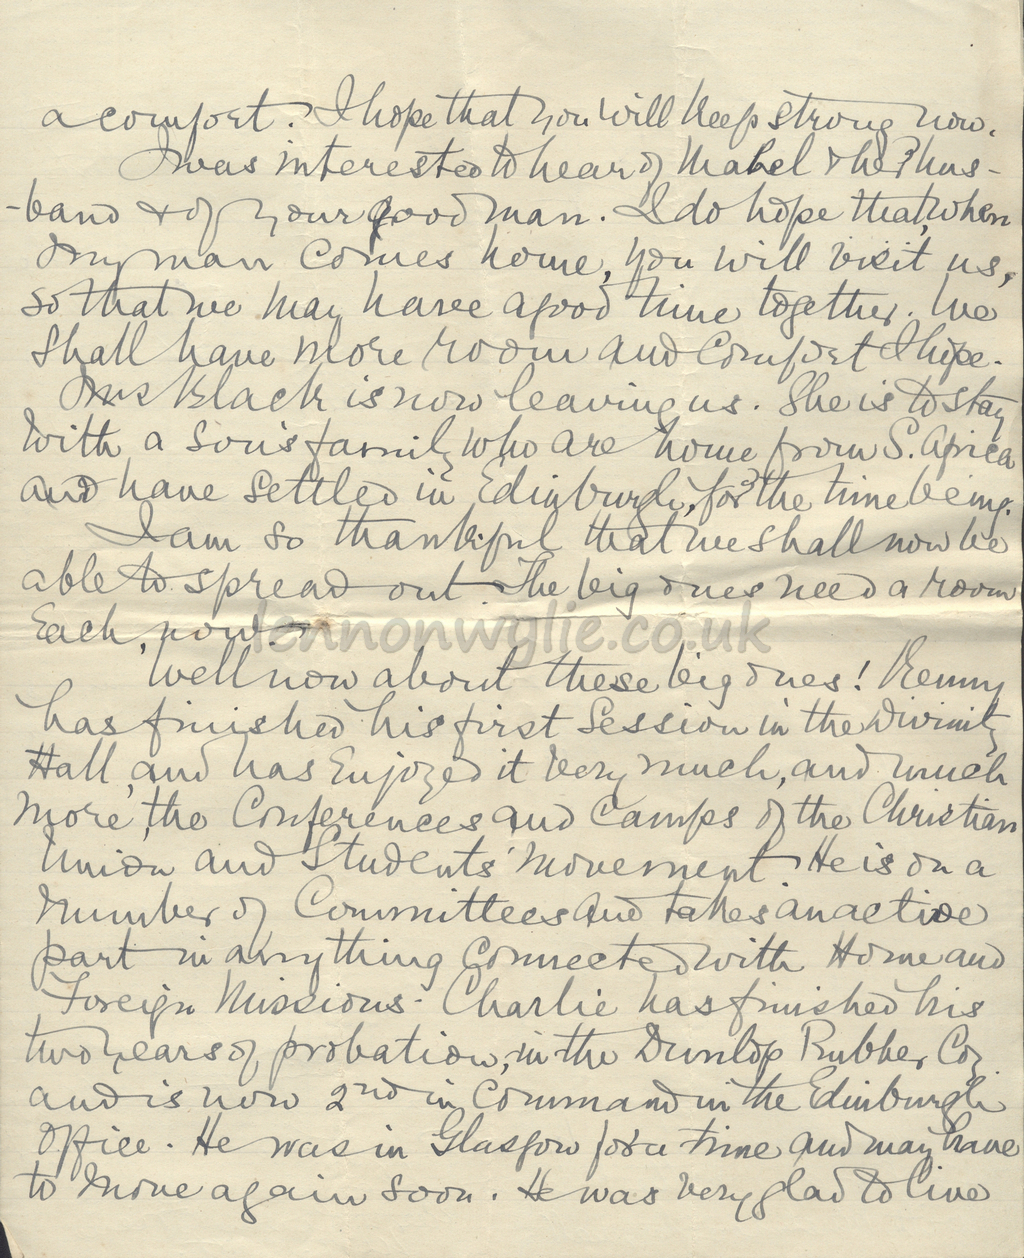 a comfort. I hope that you will keep strong now.
I was interested to hear of Mabel & her hus-
-band & of your good man. I do hope that, when
my man comes home, you will visit us,
so that we may have a good time together. We
shall have more room and comfort I hope.
Mrs Black is now leaving us. She is to stay
with a son's family who are home from S. Africa
and have settled in Edinburgh, for the time being.
I am so thankful that we shall now be
able to spread out. The big ones need a room
each, now.
lennonwylie.co.uk
Well now about these big ones! Kenny
has finished his first session in the Divinity
Hall, and has enjoyed it very much, and much
more, the Conferences and Camps of the Christian
Union and Students' Movement. He is on a
number of Committees and takes an active
part in anything connected with Home and
Foreign Missions - Charlie has finished his
two years of probation, in the Dunlop Rubber Coy
and is now 2nd in Command in the Edinburgh
office. He was in Glasgow for a time and may have
to move again soon. He was very glad to live